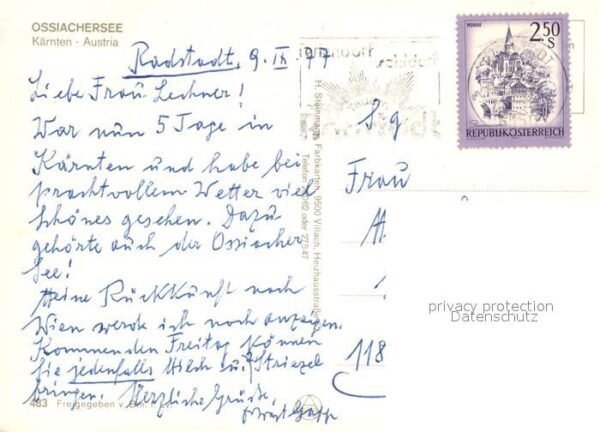 OSSIACHERSEE
Kärnten - Austria
Radstadt, 9. IX. 77
Liebe Frau Lechner!
War nun 5 Tage in
Kärnten und habe bei
prachtvollem Wetter viel
Schönes gesehen. Dazu
gehörte auch der Ossiacher
See!
Meine Rückkunft nach
Wien werde ich noch anzeigen.
Kommenden Freitag können
Sie jedenfalls Milch u. Striezel
bringen. Herzliche Grüße,
483 Freigegeben v.
H. Steinmann, Farbkarten, 9500 Villach, Heizhausstraße
Telefon oder 27547
schidorf
Tauern
MURAU
2.50
S
REPUBLIK ÖSTERREICH
Sg
Frau
H
118
privacy protection
Datenschutz